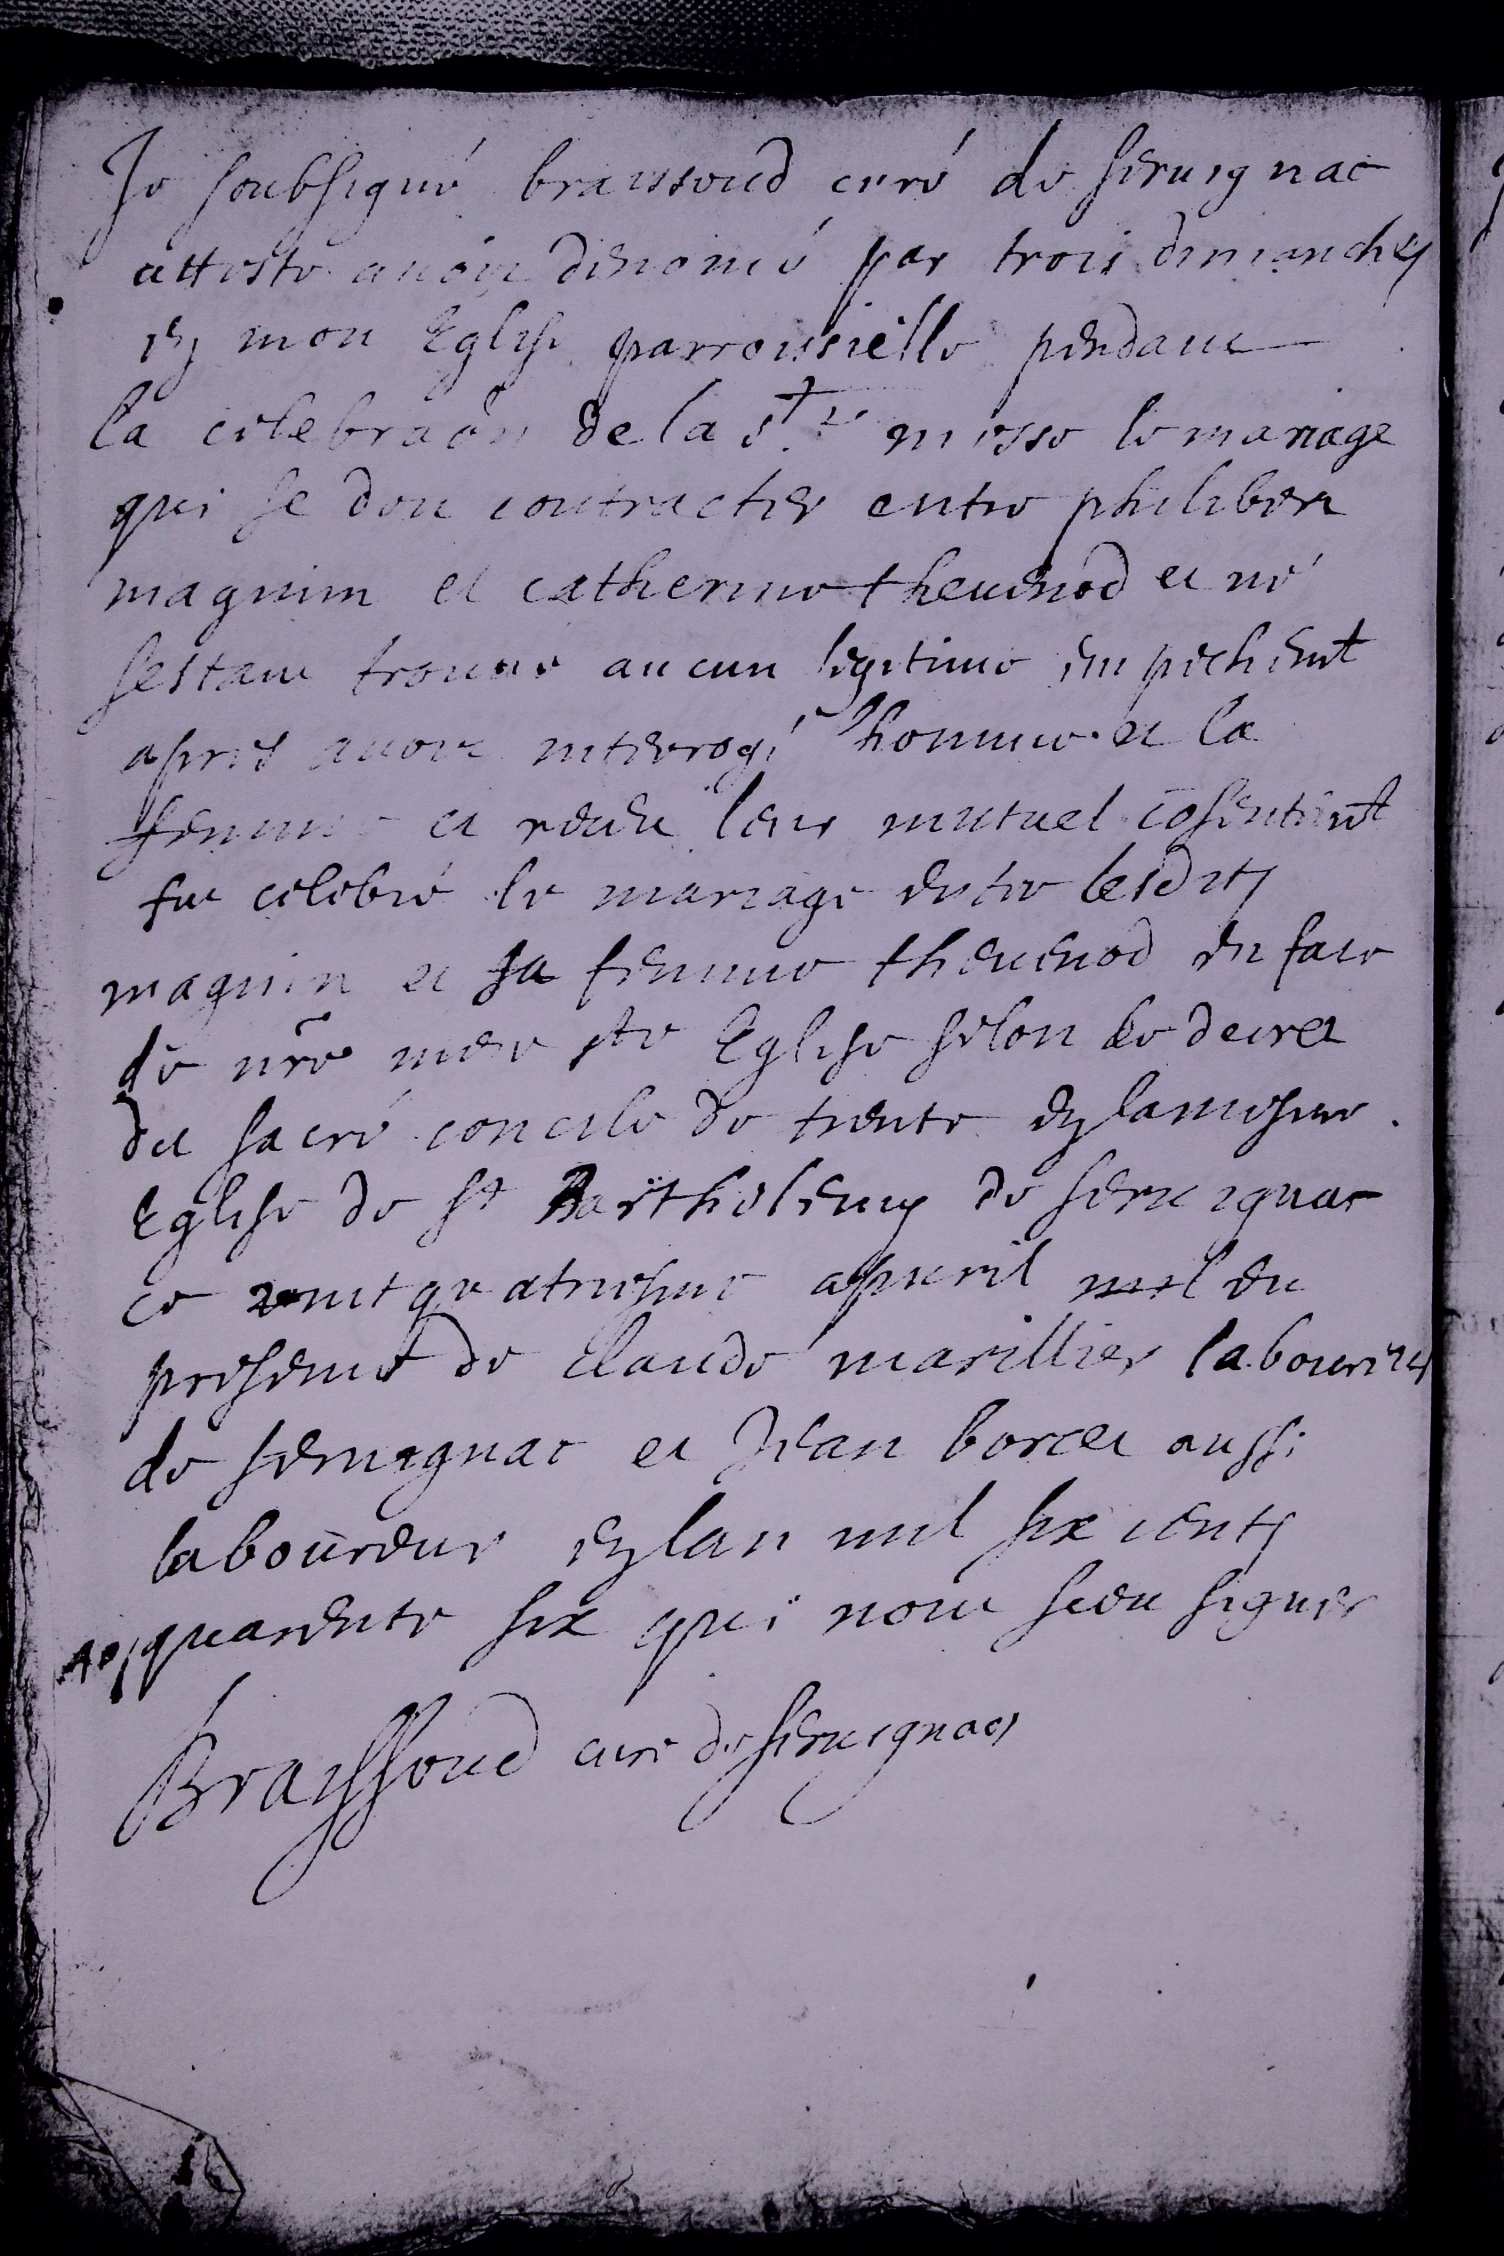 Je soubsigné brayssoud curé de seruignac
atteste auoir denoncé par trois dimanches
en mon Eglise parroissielle pendant
la celebraõn de la ste messe le mariage
qui se doit contracter entre philibert
magnim et catherine theuenod et ne
sestant trouué aucun legitime empechemt
apres auoir interrogé lhomme et la
femme et receu leur mutuel cõsentemt
fut celebré le mariage entre lesdits
magnin et sa femme theuenod en face
de nr̃e mere ste Eglise selon le decret
du sacré concile de trente en la mesme
Eglise de st Bartholemy de seruignac
ce vintquatriesme apuril mil en
presence de claude marillier laboureur
de seruignac et Jean borcet aussi
laboureur en lan mil six cents
quarente six qui nont sceu signer
Brayssoud curé de seruignac